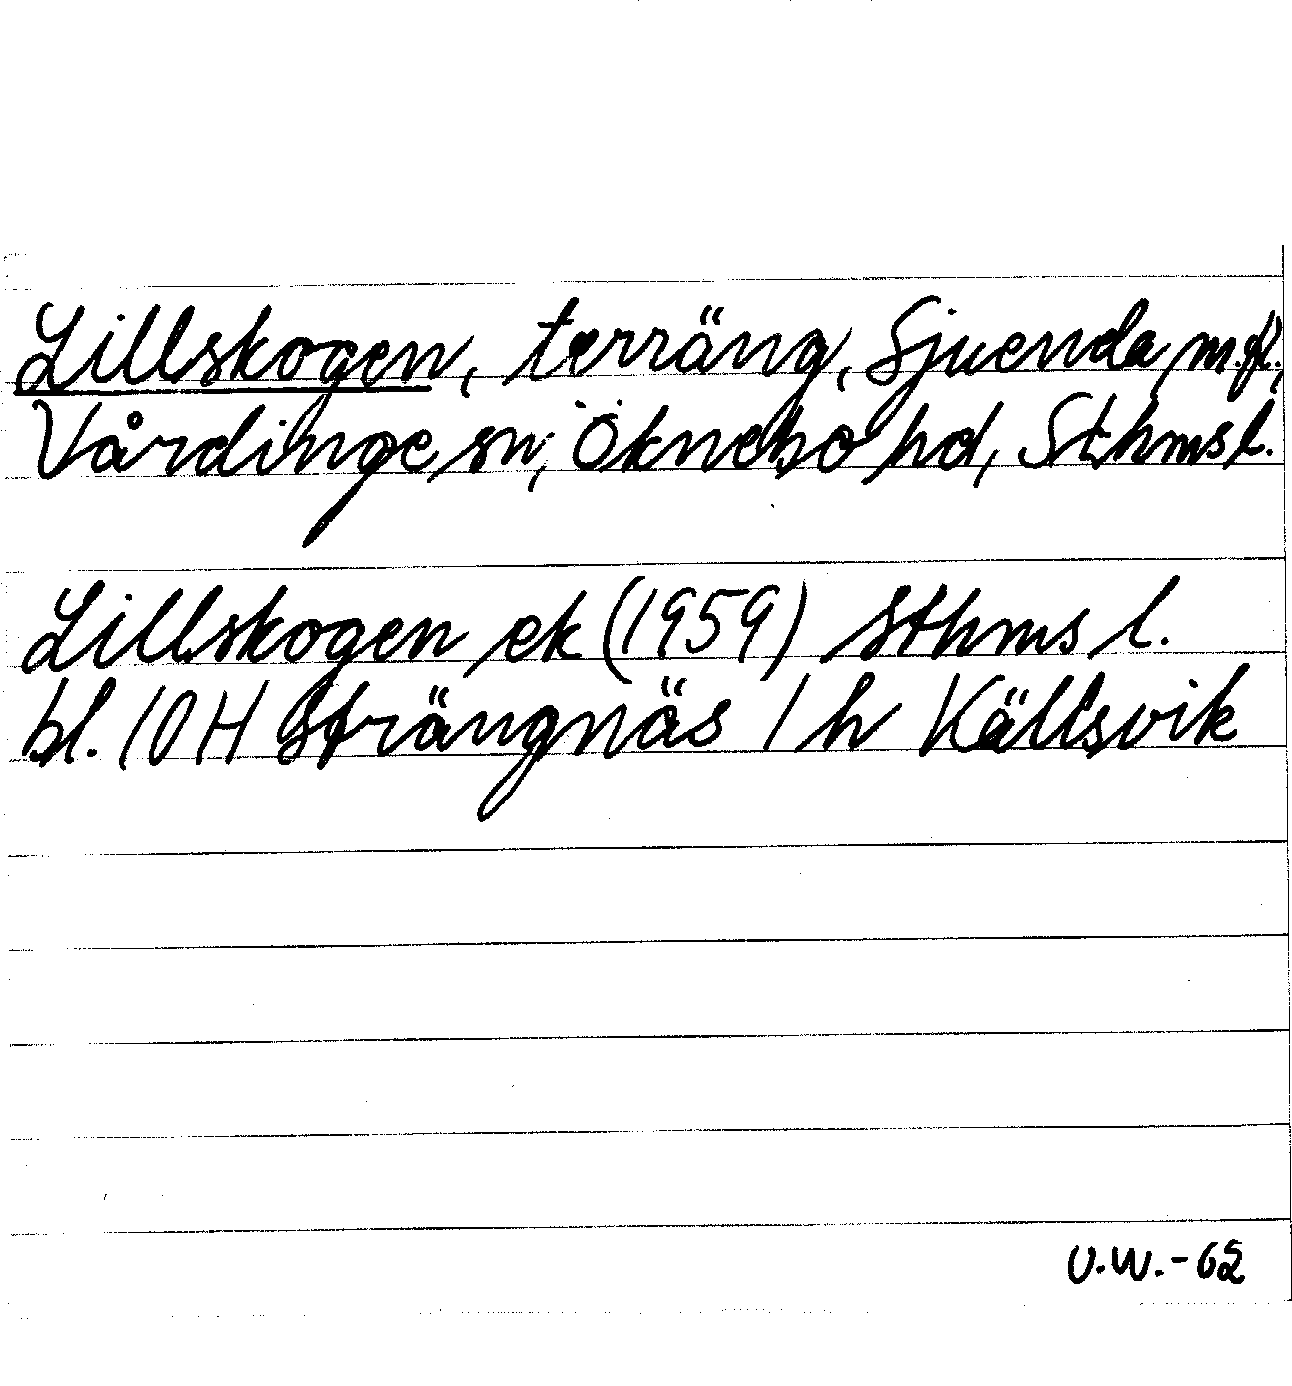 Lillskogen, terräng, Sjuenda m.fl.,
Vårdinge sn, Öknebo hd, Sthms l.
Lillskogen ek (1959) Sthms l.
bl. 10 H Strängnäs 1 h Källsvik
U.W.-62